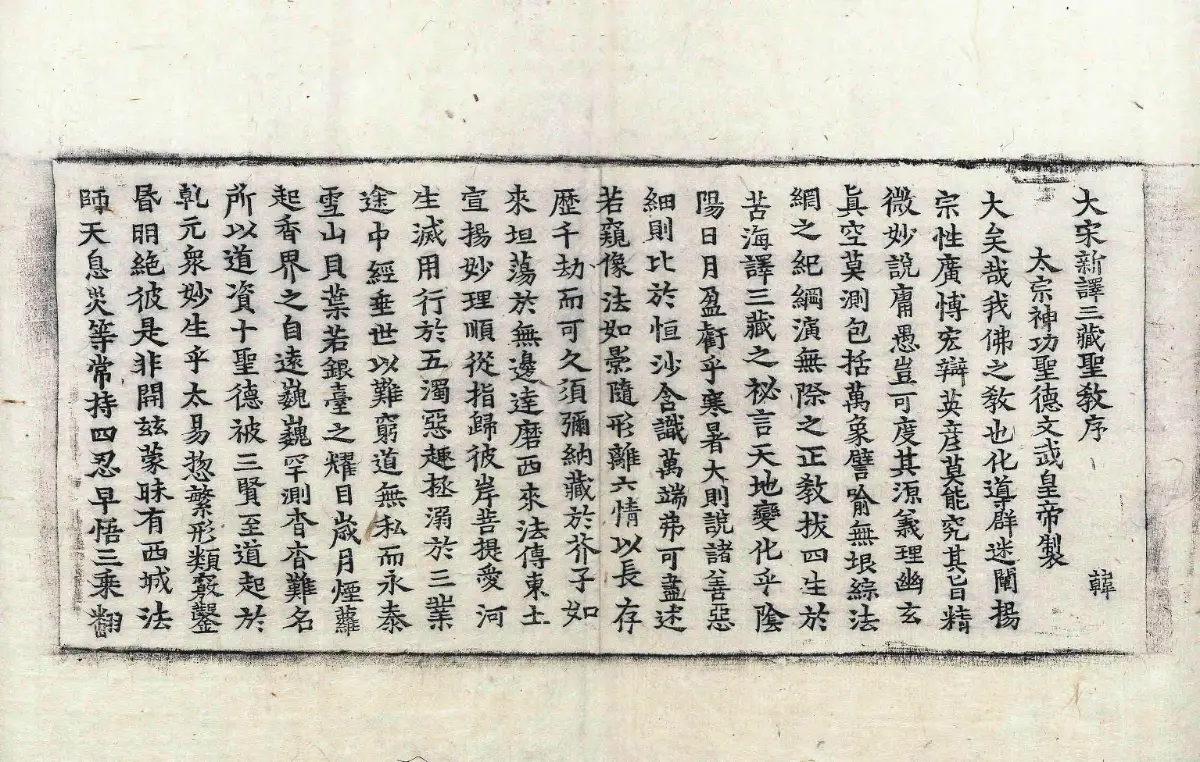 大宋新譯三藏聖敎序 韓
太宗神功聖德文武皇帝製
大矣哉我佛之敎也化導群迷闡揚
宗性廣愽宏辯英彦莫能究其旨精
微妙說庸愚豈可度其源義理幽玄
眞空莫測包括萬象譬喻無垠綜法
網之紀綱演無際之正敎拔四生於
苦海譯三藏之祕言天地變化乎陰
陽日月盈虧乎寒暑大則說諸善惡
細則比於恒沙含識萬端弗可盡述
若窺像法如影隨形離六情以長存
歷千劫而可久須彌納藏於芥子如
來坦蕩於無邊達磨西來法傳東土
宣揚妙理順從指歸彼岸菩提愛河
生滅用行於五濁惡趣拯溺於三業
途中經垂世以難窮道無私而永泰
雪山貝葉若銀臺之耀目歲月煙蘿
起香界之自遠巍巍罕測杳杳難名
所以道資十聖德被三賢至道起於
乹元衆妙生乎太易惣繁形類竅鑿
昏明絶彼是非開玆蒙昧有西域法
師天息災等常持四忍早悟三乘翻